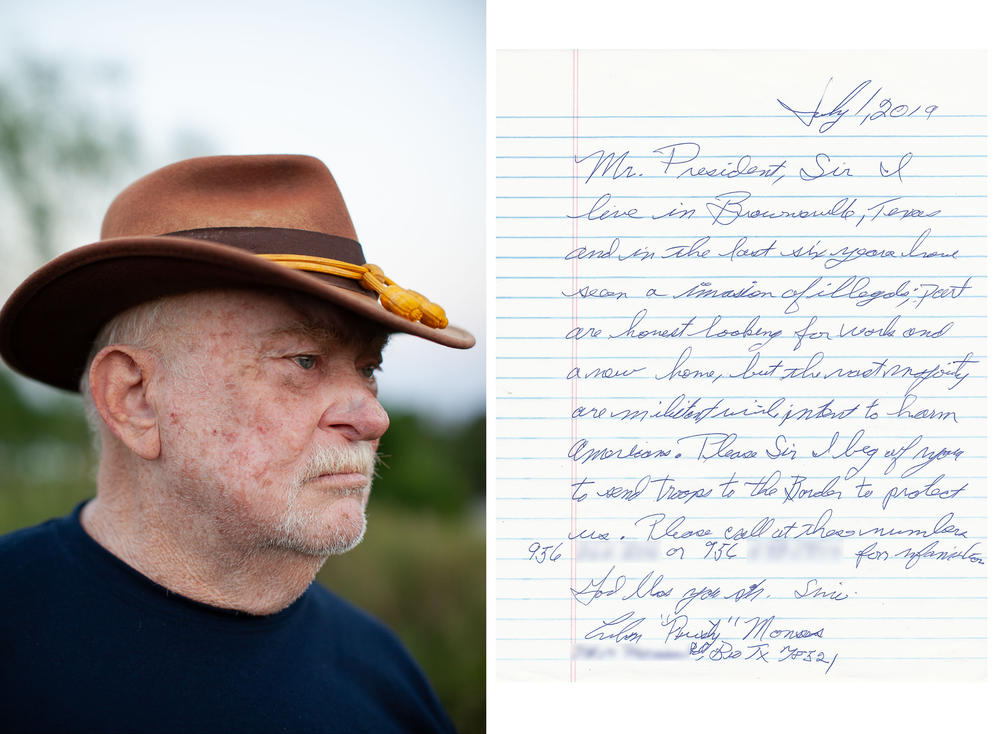 July 1, 2019
Mr. President, Sir I
live in Brownsville, Texas
and in the last six years have
seen a invasion of illegals; part
are honest looking for work and
a new home, but the vast majority
are militant with intent to harm
Americans. Please Sir I beg of you
to send troops to the Border to protect
us. Please call at these numbers
956 or 956 for information
God bless you sir. Sinc.
"Rusty" Monsees
Rd, Bro TX 78521